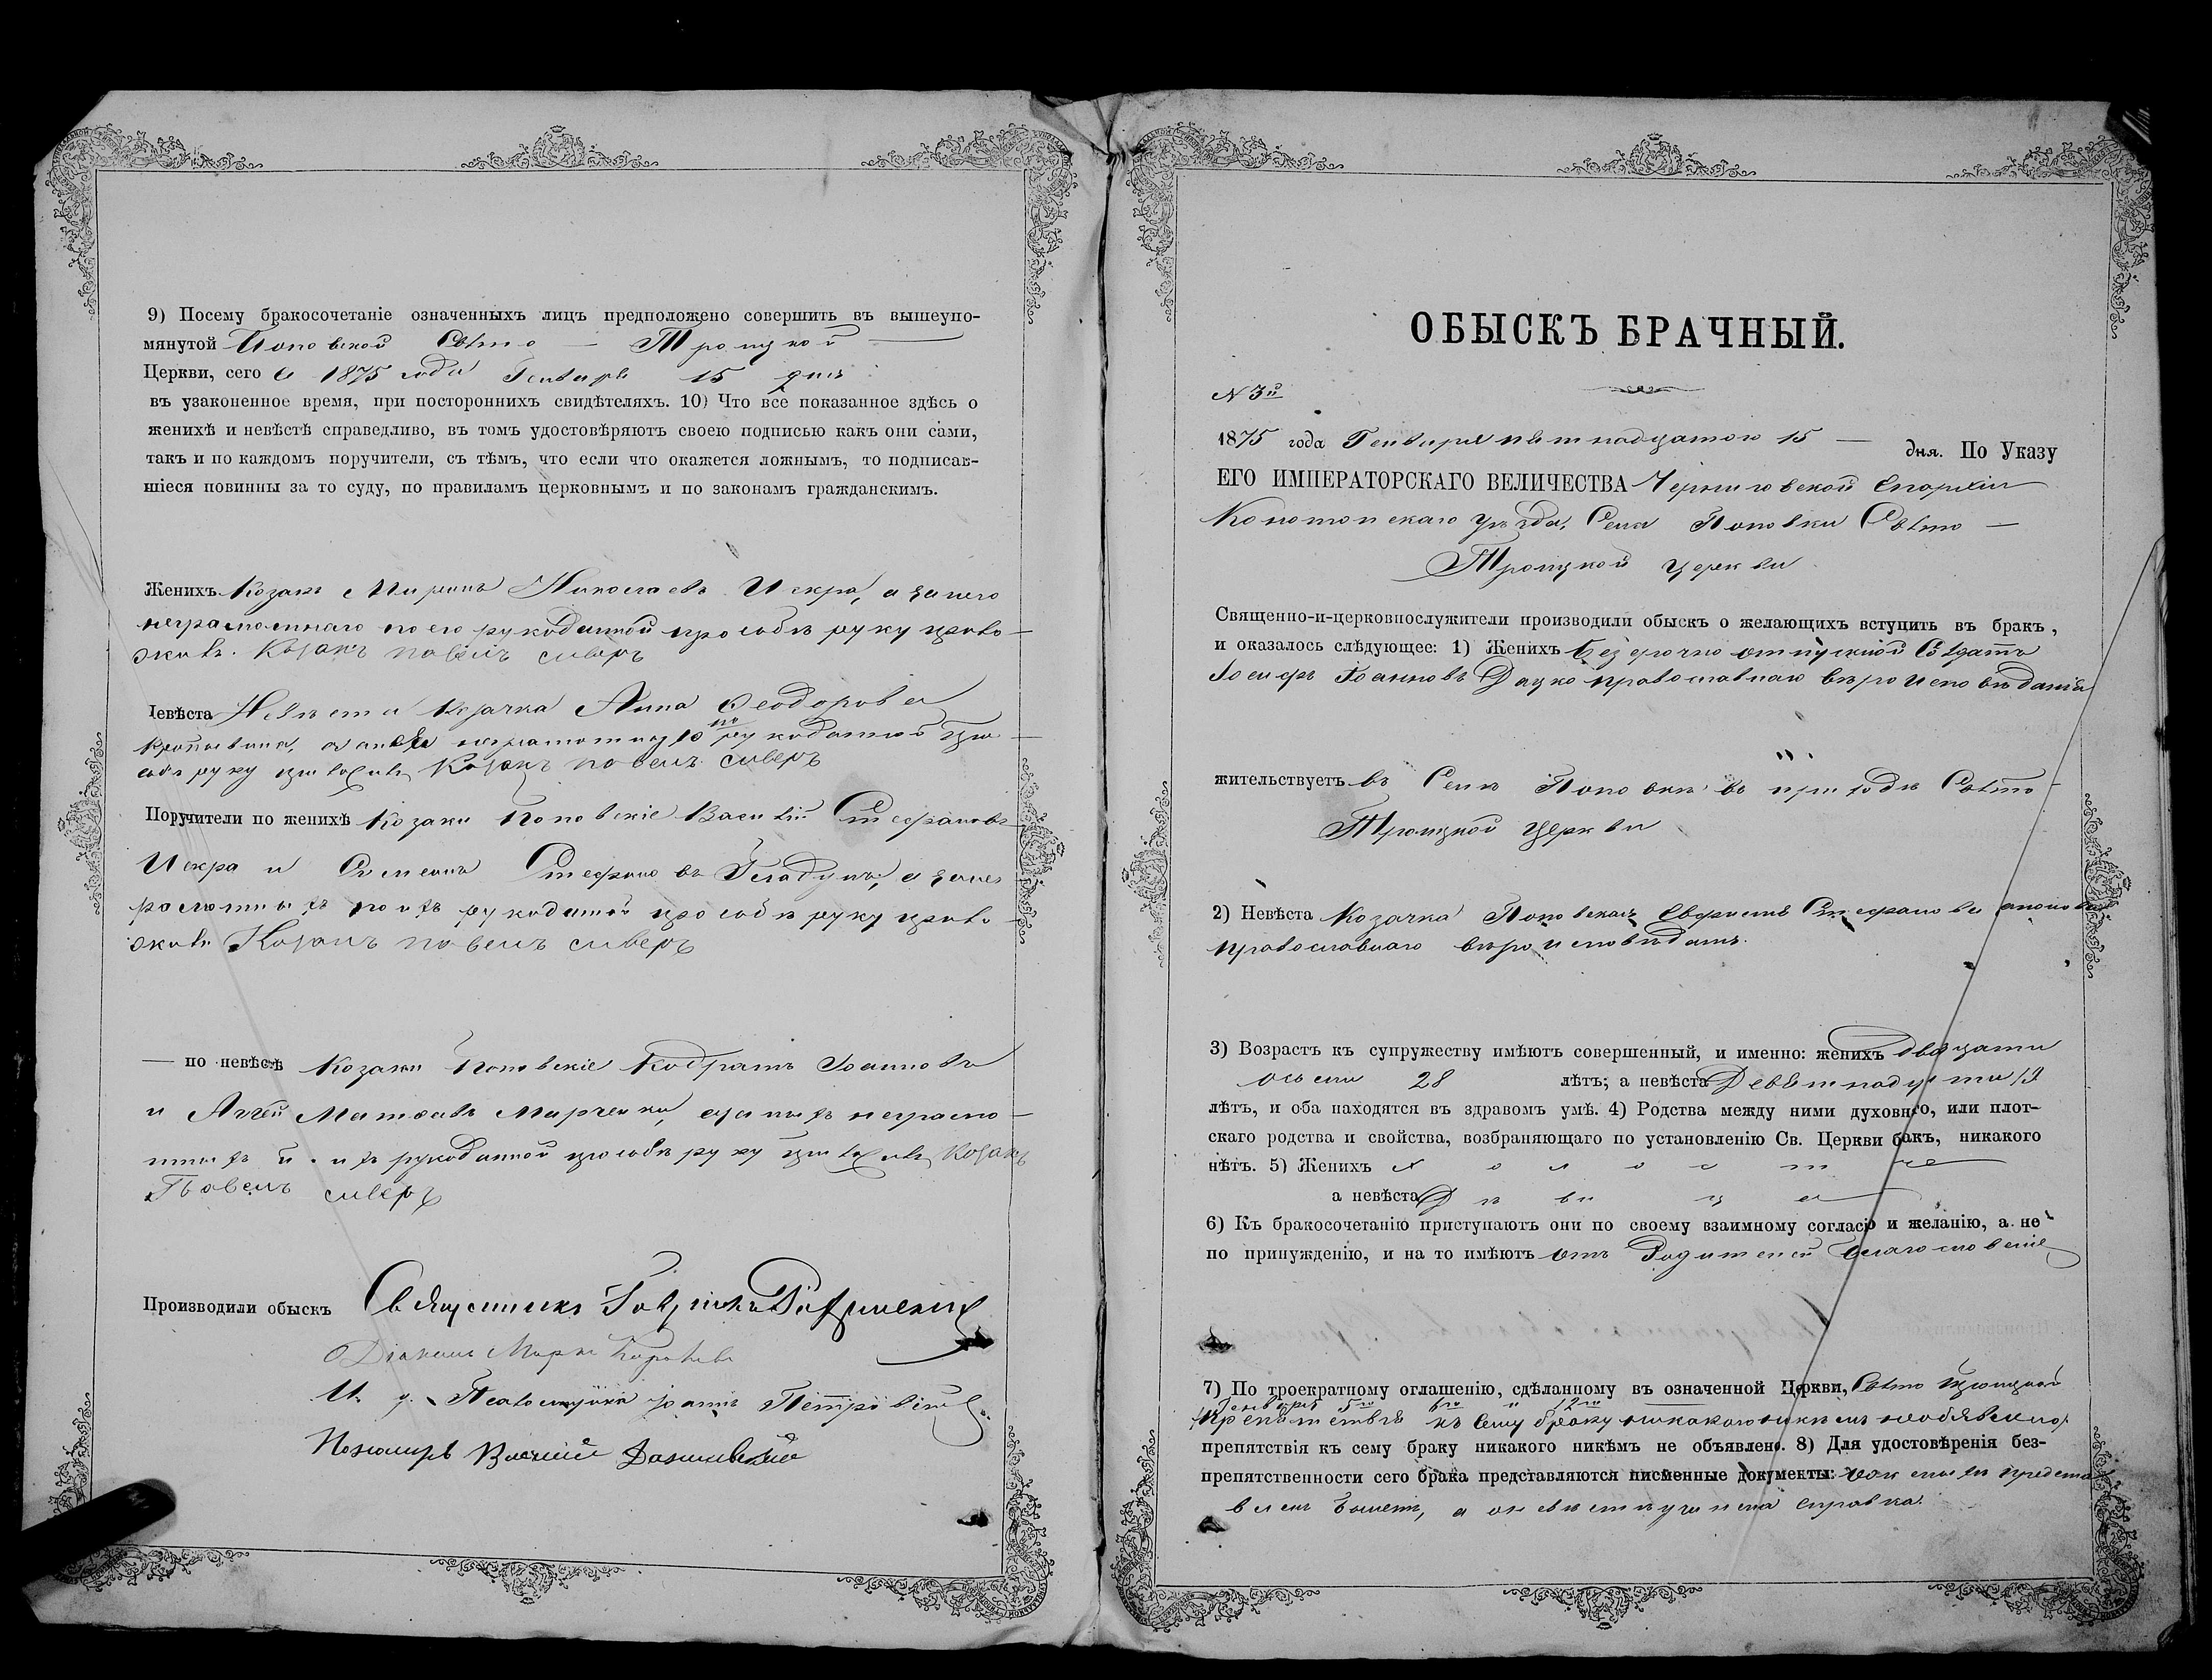 9) Посему бракосочетаніе означенныхъ лицъ предположено совершить въ вышеупо-
мянутой Поповской Свято — Троицкой —
Церкви, сего 1875 года Генваря 15 дня
въ узаконенное время, при постороннихъ свидѣтеляхъ. 10) Что все показанное здѣсь о
женихѣ и невѣстѣ справедливо, въ томъ удостовѣряютъ своею подписью какъ они сами,
такъ и по каждомъ поручители, съ тѣмъ, что если что окажется ложнымъ, то подписав-
шіеся повинны за то суду, по правиламъ церковнымъ и по законамъ гражданскимъ.
Женихъ Козакъ Миронъ Николаевъ Искра, а за него
неграмотнаго по его рукоданной прозьбѣ руку прило-
жилъ. Козакъ Павелъ сиверъ
Невѣста Невѣста Козачка Анна Ѳеодорова
рукоданной про-
руку приложилъ Козакъ Павелъ сиверъ
Поручители по женихѣ Козаки Поповскіе Василій Стефановъ
Искра и Симеонъ Стефановъ Гладунъ, а за нег-
рамотныхъ по ихъ рукоданной прозьбѣ руку прило-
жилъ Козакъ Павелъ сиверъ
— по невѣстѣ Козаки Поповскіе Кодратъ Іоанновъ
и Матѳеевъ Марченки, а за ныхъ неграмо-
тныхъ по ихъ рукоданной прозьбѣ руку приложилъ Козакъ
Павелъ сиверъ
Производили обыскъ Священникъ
Діаконъ Марко
И. д. Псаломщика Іоаннъ
Пономарь Василій
ОБЫСКЪ БРАЧНЫЙ.
N 3й
1875 года Генваря пятнадцатого 15 — дня. По Указу
ЕГО ИМПЕРАТОРСКАГО ВЕЛИЧЕСТВА Черниговской Епархіи
Конотопскаго уѣзда, Села Поповки Свято —
Троицкой церкви
Священно-и-церковнослужители производили обыскъ о желающихъ вступить въ бракъ,
и оказалось слѣдующее: 1) Женихъ безсрочно отпускной Солдатъ
Іосифъ Іоанновъ Дацко православнаго вѣроисповѣданія
жительствуетъ въ Селѣ Поповкѣ въ приходѣ Свято —
Троицкой Церкви
2) Невѣста Козачка Поповская Стефанова
православнаго вѣроисповѣданія.
3) Возрастъ къ супружеству имѣютъ совершенный, и именно: женихъ двадцати
осьми 28 лѣтъ; а невѣста Девятнадцати 19
лѣтъ, и оба находятся въ здравомъ умѣ. 4) Родства между ними духовнго, или плот-
скаго родства и свойства, возбраняющаго по установленію Св. Церкви бакъ, никакого
нѣтъ. 5) Женихъ холостъ
а невѣста Дѣвица
6) Къ бракосочетанію приступаютъ они по своему взаимному согласію и желанію, а не
по принужденію, и на то имѣютъ отъ Родителей благословеніе
7) По троекратному оглашенію, сдѣланному въ означенной Церкви, Свято Троицкой
Генваря 5го 6го и 12го
препятствія къ сему браку никакого никѣмъ необявлено.
препятствія къ сему браку никакого никѣмъ не объявлено. 8) Для удостовѣренія без-
препятственности сего брака представляются писменные документы: предста
вленъ билетъ, а о невѣстѣ учинена справка.